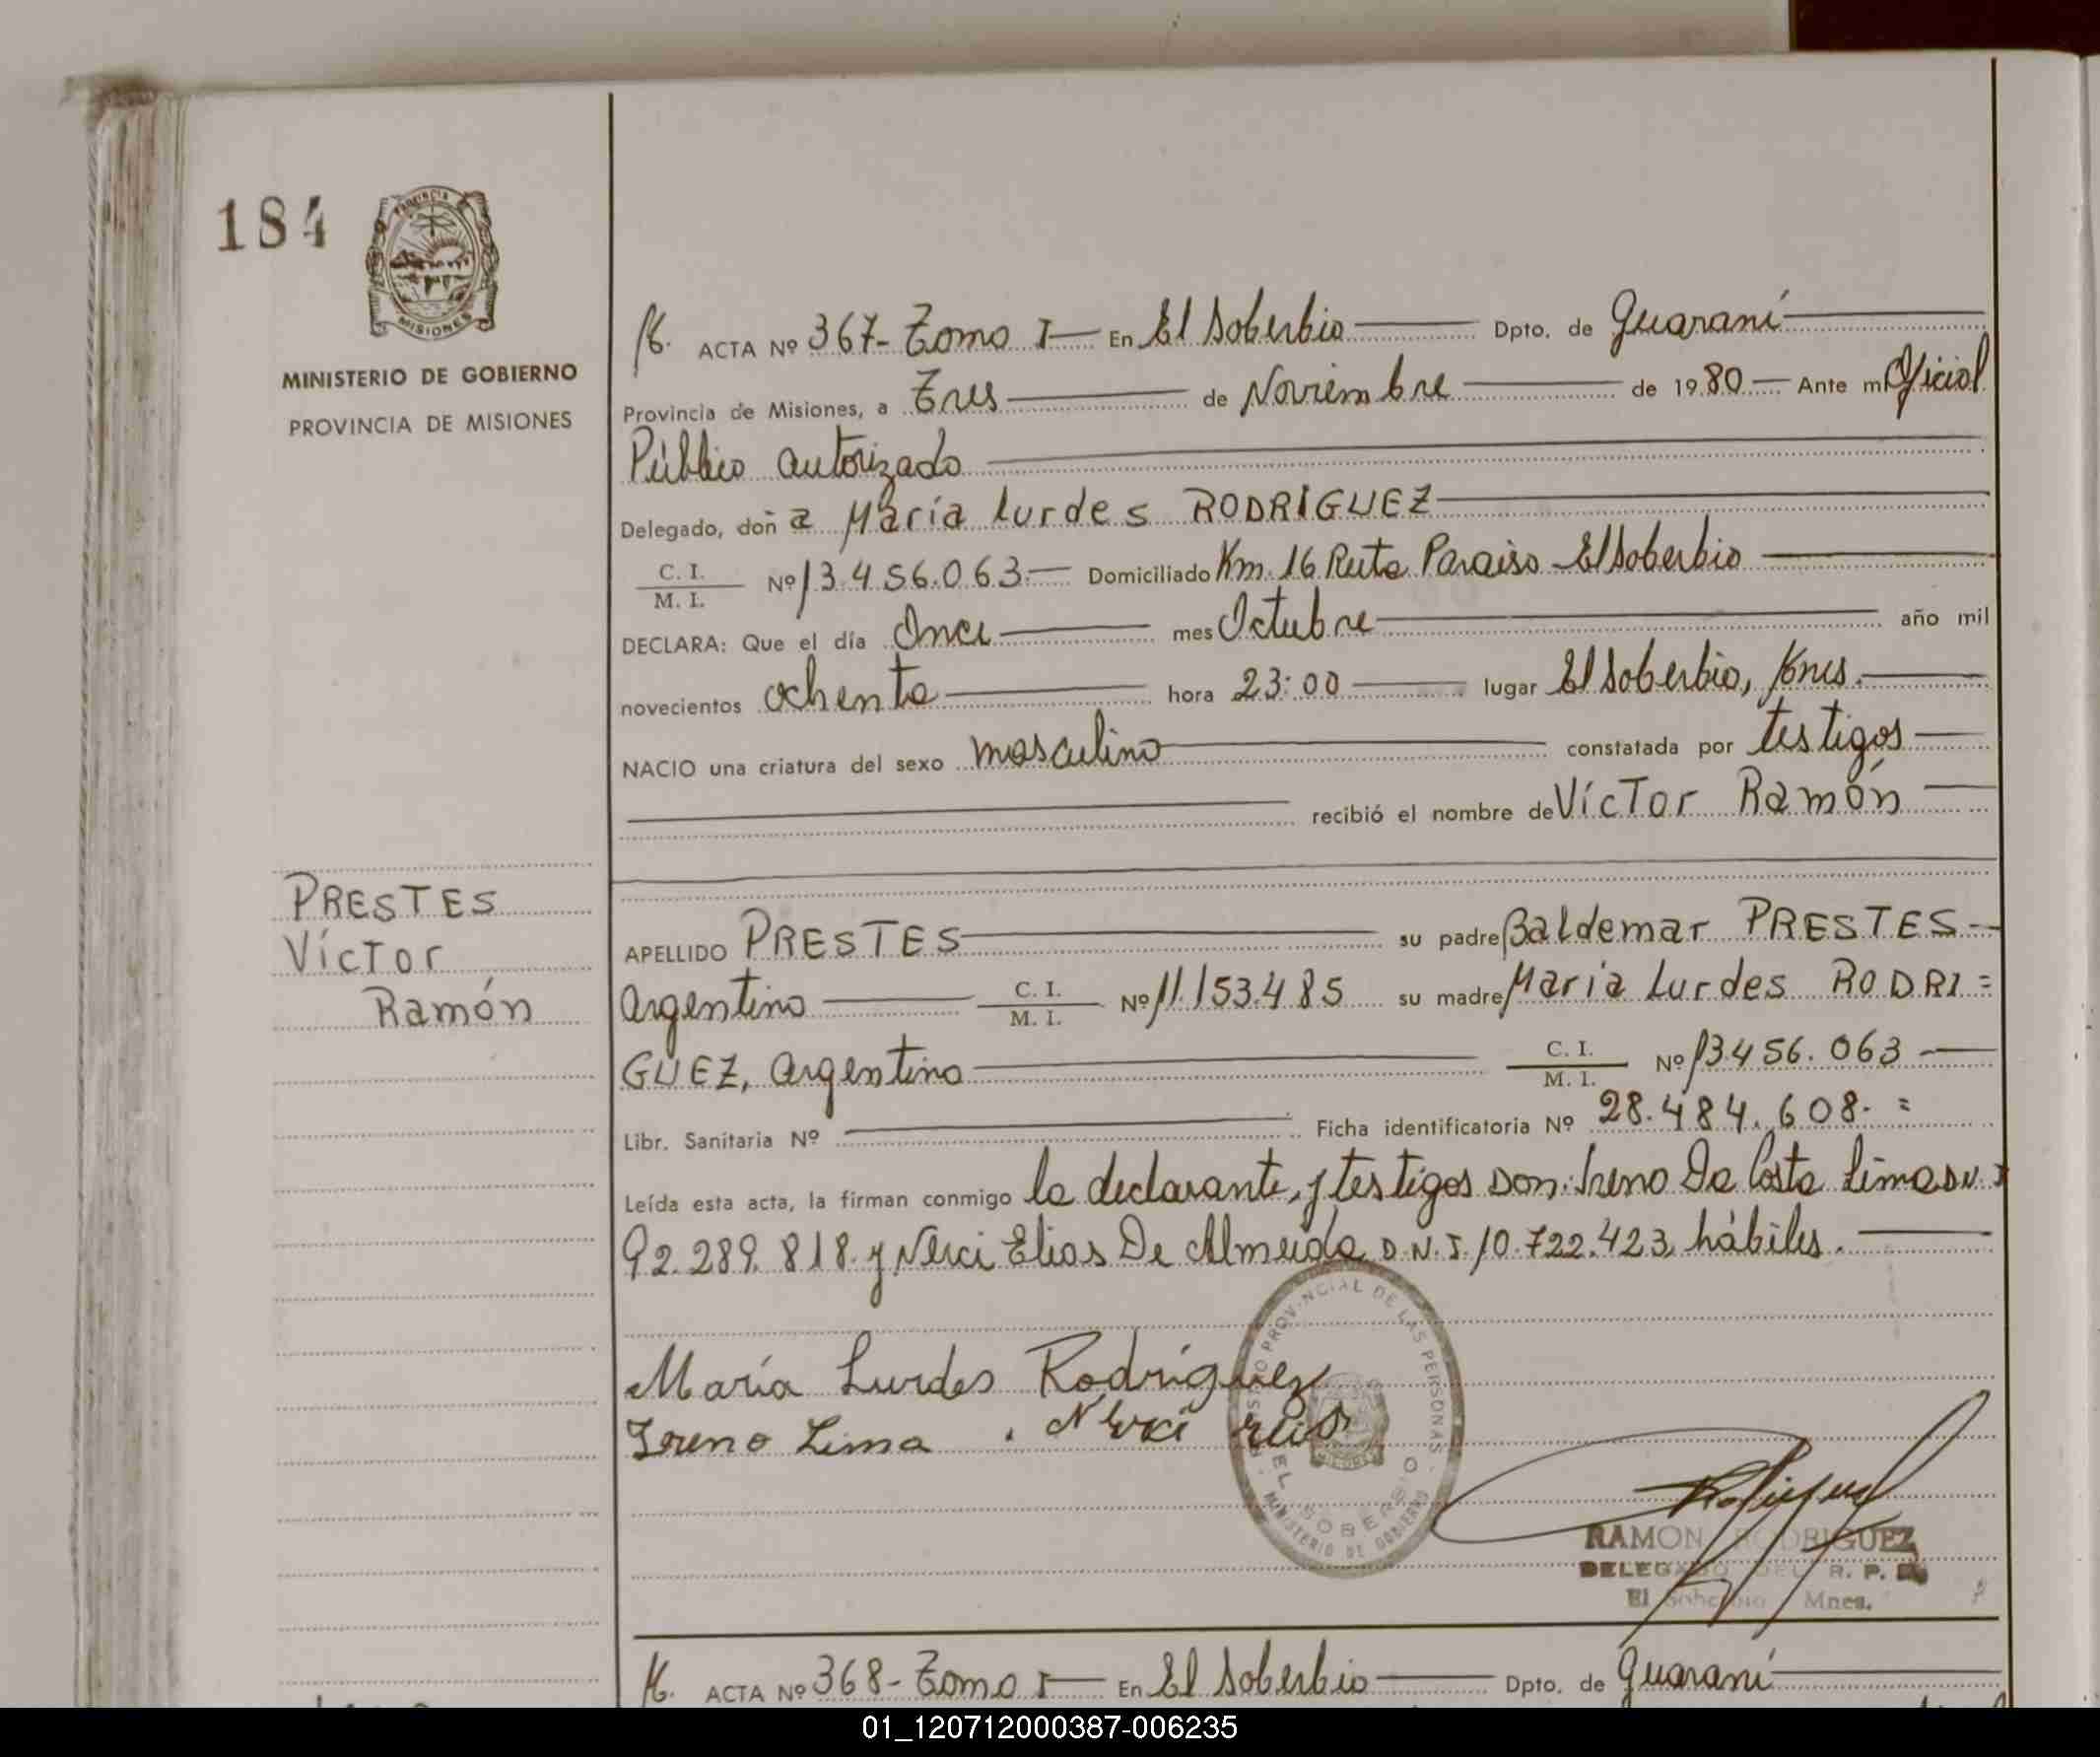 184
PROVINCIA
MISIONES
MINISTERIO DE GOBIERNO
PROVINCIA DE MISIONES
ACTA Nº 367- Tomo I En El Soberbio Dpto. de Guaraní
Provincia de Misiones, a Tres de Noviembre de 1980 Ante mí Oficial
Público autorizado
Delegado, doña María Lurdes RODRÍGUEZ
C. I. / M. I. Nº 13.456.063. Domiciliado Km. 16 Ruta Paraiso - El Soberbio
DECLARA: Que el día Once mes Octubre año mil
novecientos ochenta hora 23:00 lugar El Soberbio, Mnes.
NACIO una criatura del sexo masculino constatada por testigos
recibió el nombre de Víctor Ramón
PRESTES
Víctor
Ramón
APELLIDO PRESTES su padre Baldemar PRESTES
Argentino C. I. / M. I. Nº 11.153.485 su madre María Lurdes RODRI=
GUEZ, Argentina C. I. / M. I. Nº 13.456.063
Libr. Sanitaria Nº Ficha identificatoria Nº 28.484.608. =
Leída esta acta, la firman conmigo la declarante, y testigos Don: Ireno Da Costa Lima D.N.I
92.289.818. y Nerci Elias De Almeida D.N.I. 10.722.423, hábiles.
María Lurdes Rodríguez
Ireno Lima . Nerci
REGISTRO PROVINCIAL DE LAS PERSONAS
EL SOBERBIO
MINISTERIO DE GOBIERNO
RAMON RODRIGUEZ
DELEGADO DEL R. P.
El Soberbio Mnes.
ACTA Nº 368- Tomo I En El Soberbio Dpto. de Guaraní
01_120712000387-006235